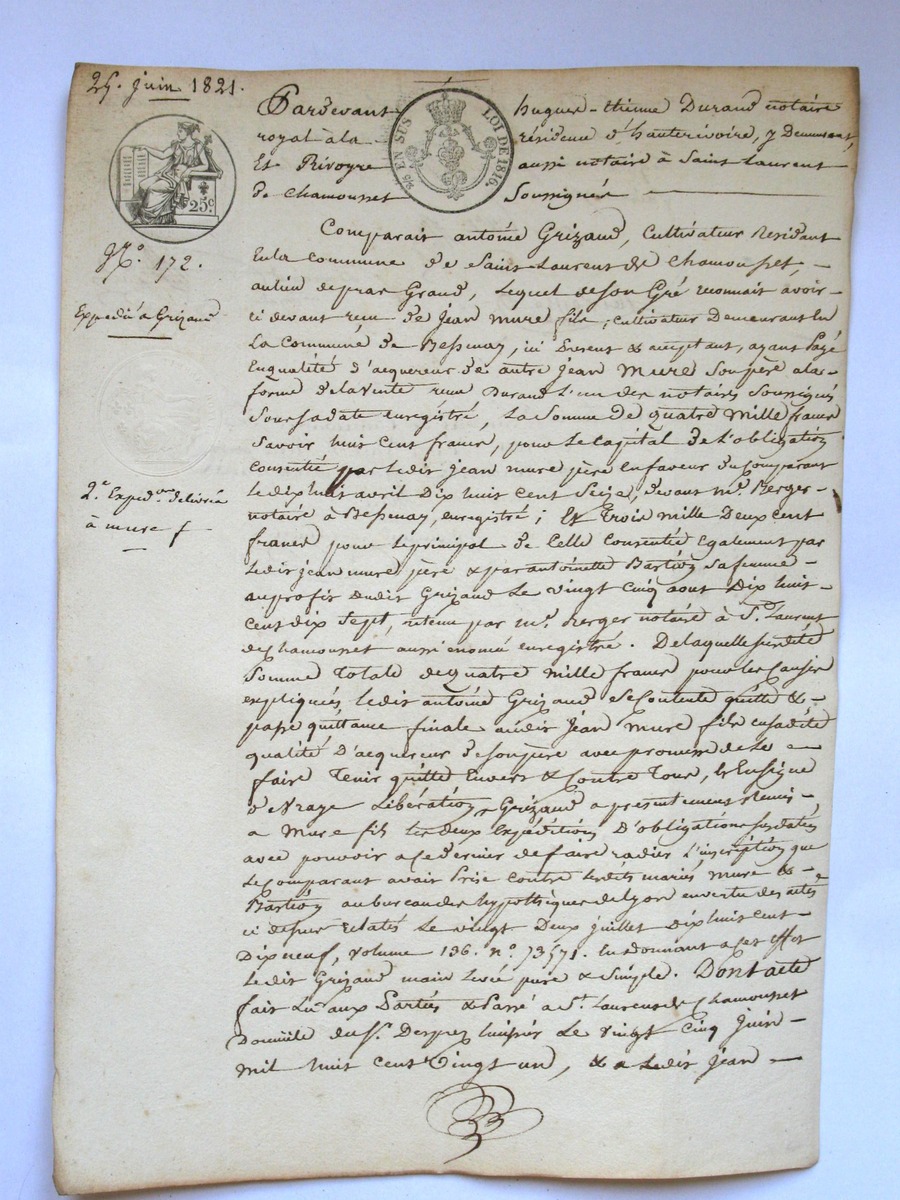 25. juin 1821.
Pardevant hugues-etienne Durand notaire
royal à la résidence d'hauterivoire, y Demeurant,
Et Rivoyre aussi notaire à Saint Laurent
de chamousset Soussignés
EN SUS
LOI DE 1816.
25c
N.o 172.
Expedié a Grizaud
2.e Exped.on delivrée
à mure f
Comparait antoine Grizaud, Cultivateur Residant
En la Commune de Saint Laurent de Chamousset,
au lieu de pras Graud, Lequel de son Gré reconnait avoir
ci devant recu de jean mure fils, cultivateur Demeurant En
La Commune de Bessenay, ici present & acceptant, ayant Payé
En qualité d'acquereur de autre jean mure son père a la
forme de la vente recue Durand l'un des notaires Soussignés
Sous sa date enregistré, La Somme de quatre mille francs
Savoir huit Cent francs, pour Le Capital de L'obligation
Consentie par Ledit jean mure père en faveur du Comparant
Le dix huit avril Dix huit cent Seize, devant m.e Berger
notaire à Bessenay, enregistré; Et Trois mille Deux cent
francs pour Le principal de Celle Consentie également par
Ledit jean mure père & par antoinette Bastion sa femme
au profit dudit Grizaud Le vingt Cinq aout Dix huit
Cent dix Sept, retenu par m.e Berger notaire à S.t Laurent
de chamousset aussi enregistré. De laquelle susdite
Somme Totale de quatre mille francs pour les Causes
expliquées Ledit antoine Grizaud Se Contente quitte &
passe quittance finale audit Jean mure fils en sadite
qualité D'acquereur de son père avec promesse de Le
faire Tenir quitte Envers & Contre Tous, Et Enseigne
de vraye Libération, Grizaud a presentement remis
a Mure fils les deux Expéditions D'obligations susdatées
avec pouvoir a ce dernier de faire radier L'inscription que
Le Comparant avait Prise Contre lesdits mariés mure &
Bastion au bureau des hypothèques de Lyon en vertu des actes
ci dessus relatés Le vingt Deux juillet Dix huit cent
Dix neuf, volume 136. n.o 73571. En donnant a Cet effet
Ledit Grizaud main Levée pure & Simple. Dont acte
fait Lu aux Parties & Passé a S.t Laurent de Chamousset
Domicile du S.r Desprez huissier Le vingt Cinq juin
mil huit cent Vingt un, & a Ledit Jean